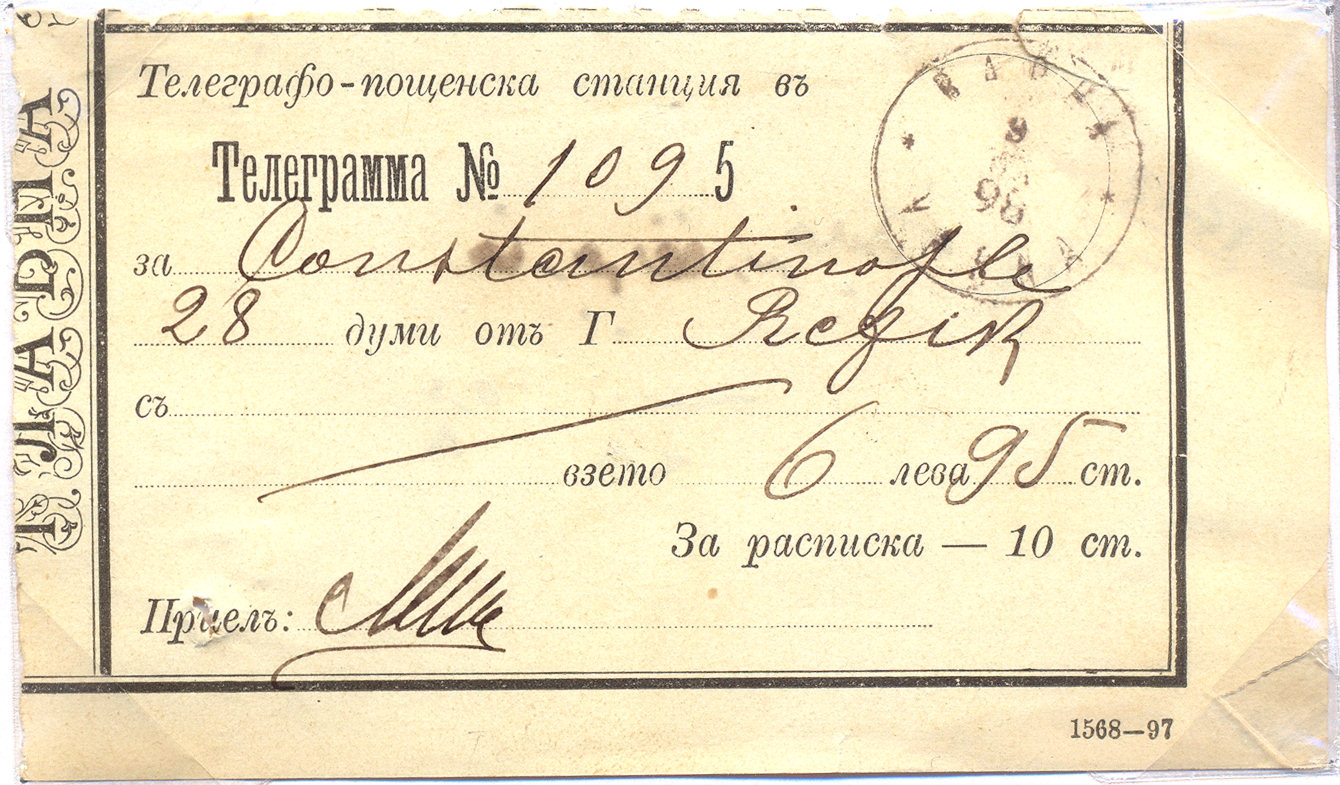 Телеграфо-пощенска станция въ
Телеграмма № 1095
за Constantinople
28 думи отъ Г Refik
съ
взето 6 лева 95 ст.
За расписка — 10 ст.
Приелъ:
1568—97
ВАРНА
9
98
VARNA